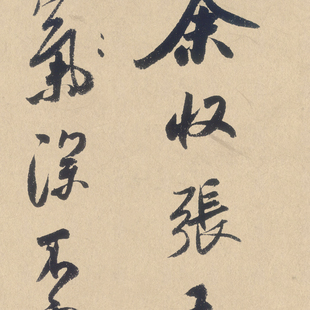 余收張
氣深不